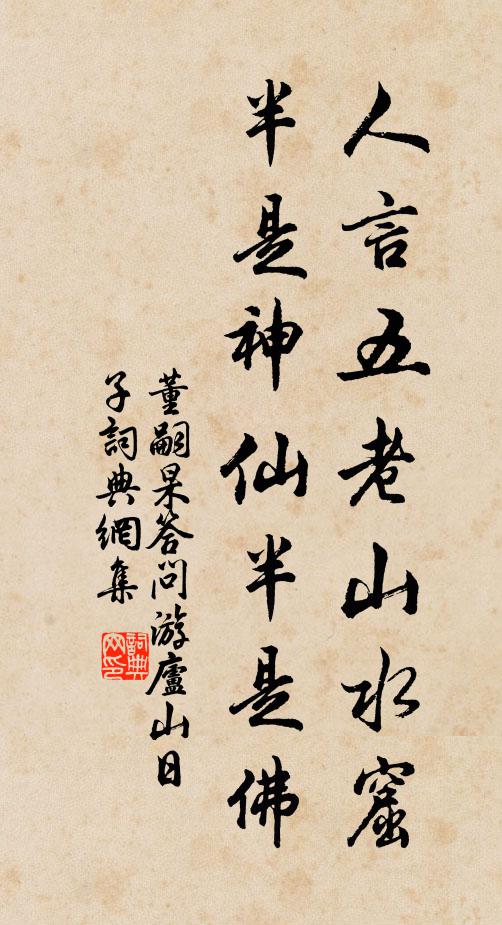 人言五老山水窟
半是神仙半是佛
董嗣杲答問游廬山日
子詞典網集
詞典
网印